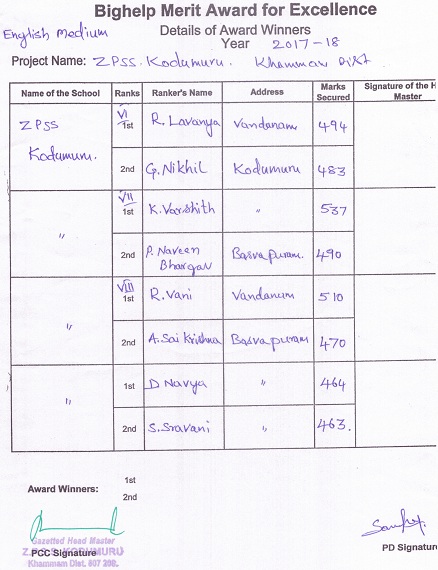 Bighelp Merit Award for Excellence
English Medium
Details of Award Winners
Year 2017-18
Project Name: ZPSS. Kodumuru. Khammam Dist
Name of the School Ranks Ranker's Name Address Marks Secured Signature of the H Master
ZPSS Kodumuru. VI 1st R. Lavanya Vandanam 494
2nd G. Nikhil Kodumuru 483
" VII 1st K. Varshith " 537
2nd P. Naveen Bhargav Basvapuram. 490
" VIII 1st R. Vani Vandanam 510
2nd A. Sai Krishna Basvapuram 470
" 1st D Navya " 464
2nd S. Sravani " 463.
Award Winners: 1st
2nd
Gazetted Head Master
PCC Signature
Z.P.S.S. KODUMURU
Khammam Dist. 507 208.
PD Signature